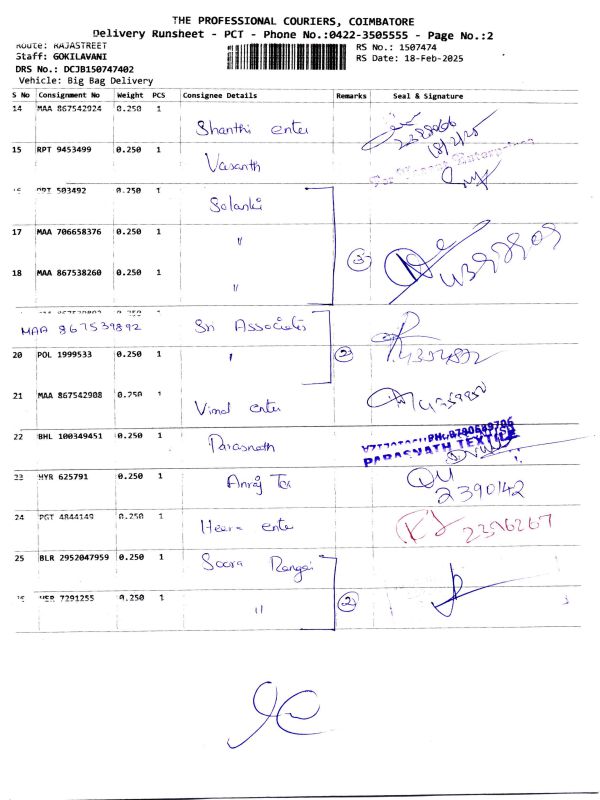 THE PROFESSIONAL COURIERS, COIMBATORE
Delivery Runsheet - PCT - Phone No.:0422-3505555 - Page No.:2
Route: RAJASTREET
RS No.: 1507474
Staff: GOKILAVANI
RS Date: 18-Feb-2025
DRS No.: DCJB150747402
Vehicle: Big Bag Delivery
S No Consignment No Weight PCS Consignee Details Remarks Seal & Signature
14 MAA 867542924 0.250 1 Shanthi enter 18/2/25
15 RPT 9453499 0.250 1 Vasanth
503492 0.250 1 Solanki
17 MAA 706658376 0.250 1 "
18 MAA 867538260 0.250 1 " 3
MAA 867539892 Sri Associates
20 POL 1999533 0.250 1 " 2
21 MAA 867542908 0.250 1 Vimal enter
22 BHL 100349451 0.250 1 Parasnath PARASNATH TEXTILE
23 HYR 625791 0.250 1 2390142
24 PGT 4844149 0.250 1 Heera enter
25 BLR 2952047959 0.250 1
7291255 0.250 1 " 2